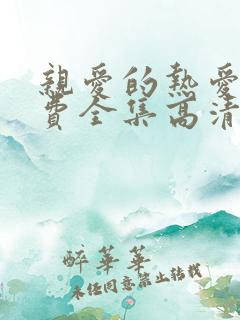 親愛的熱愛
費全集高清
醉華華
未經同意禁止轉載